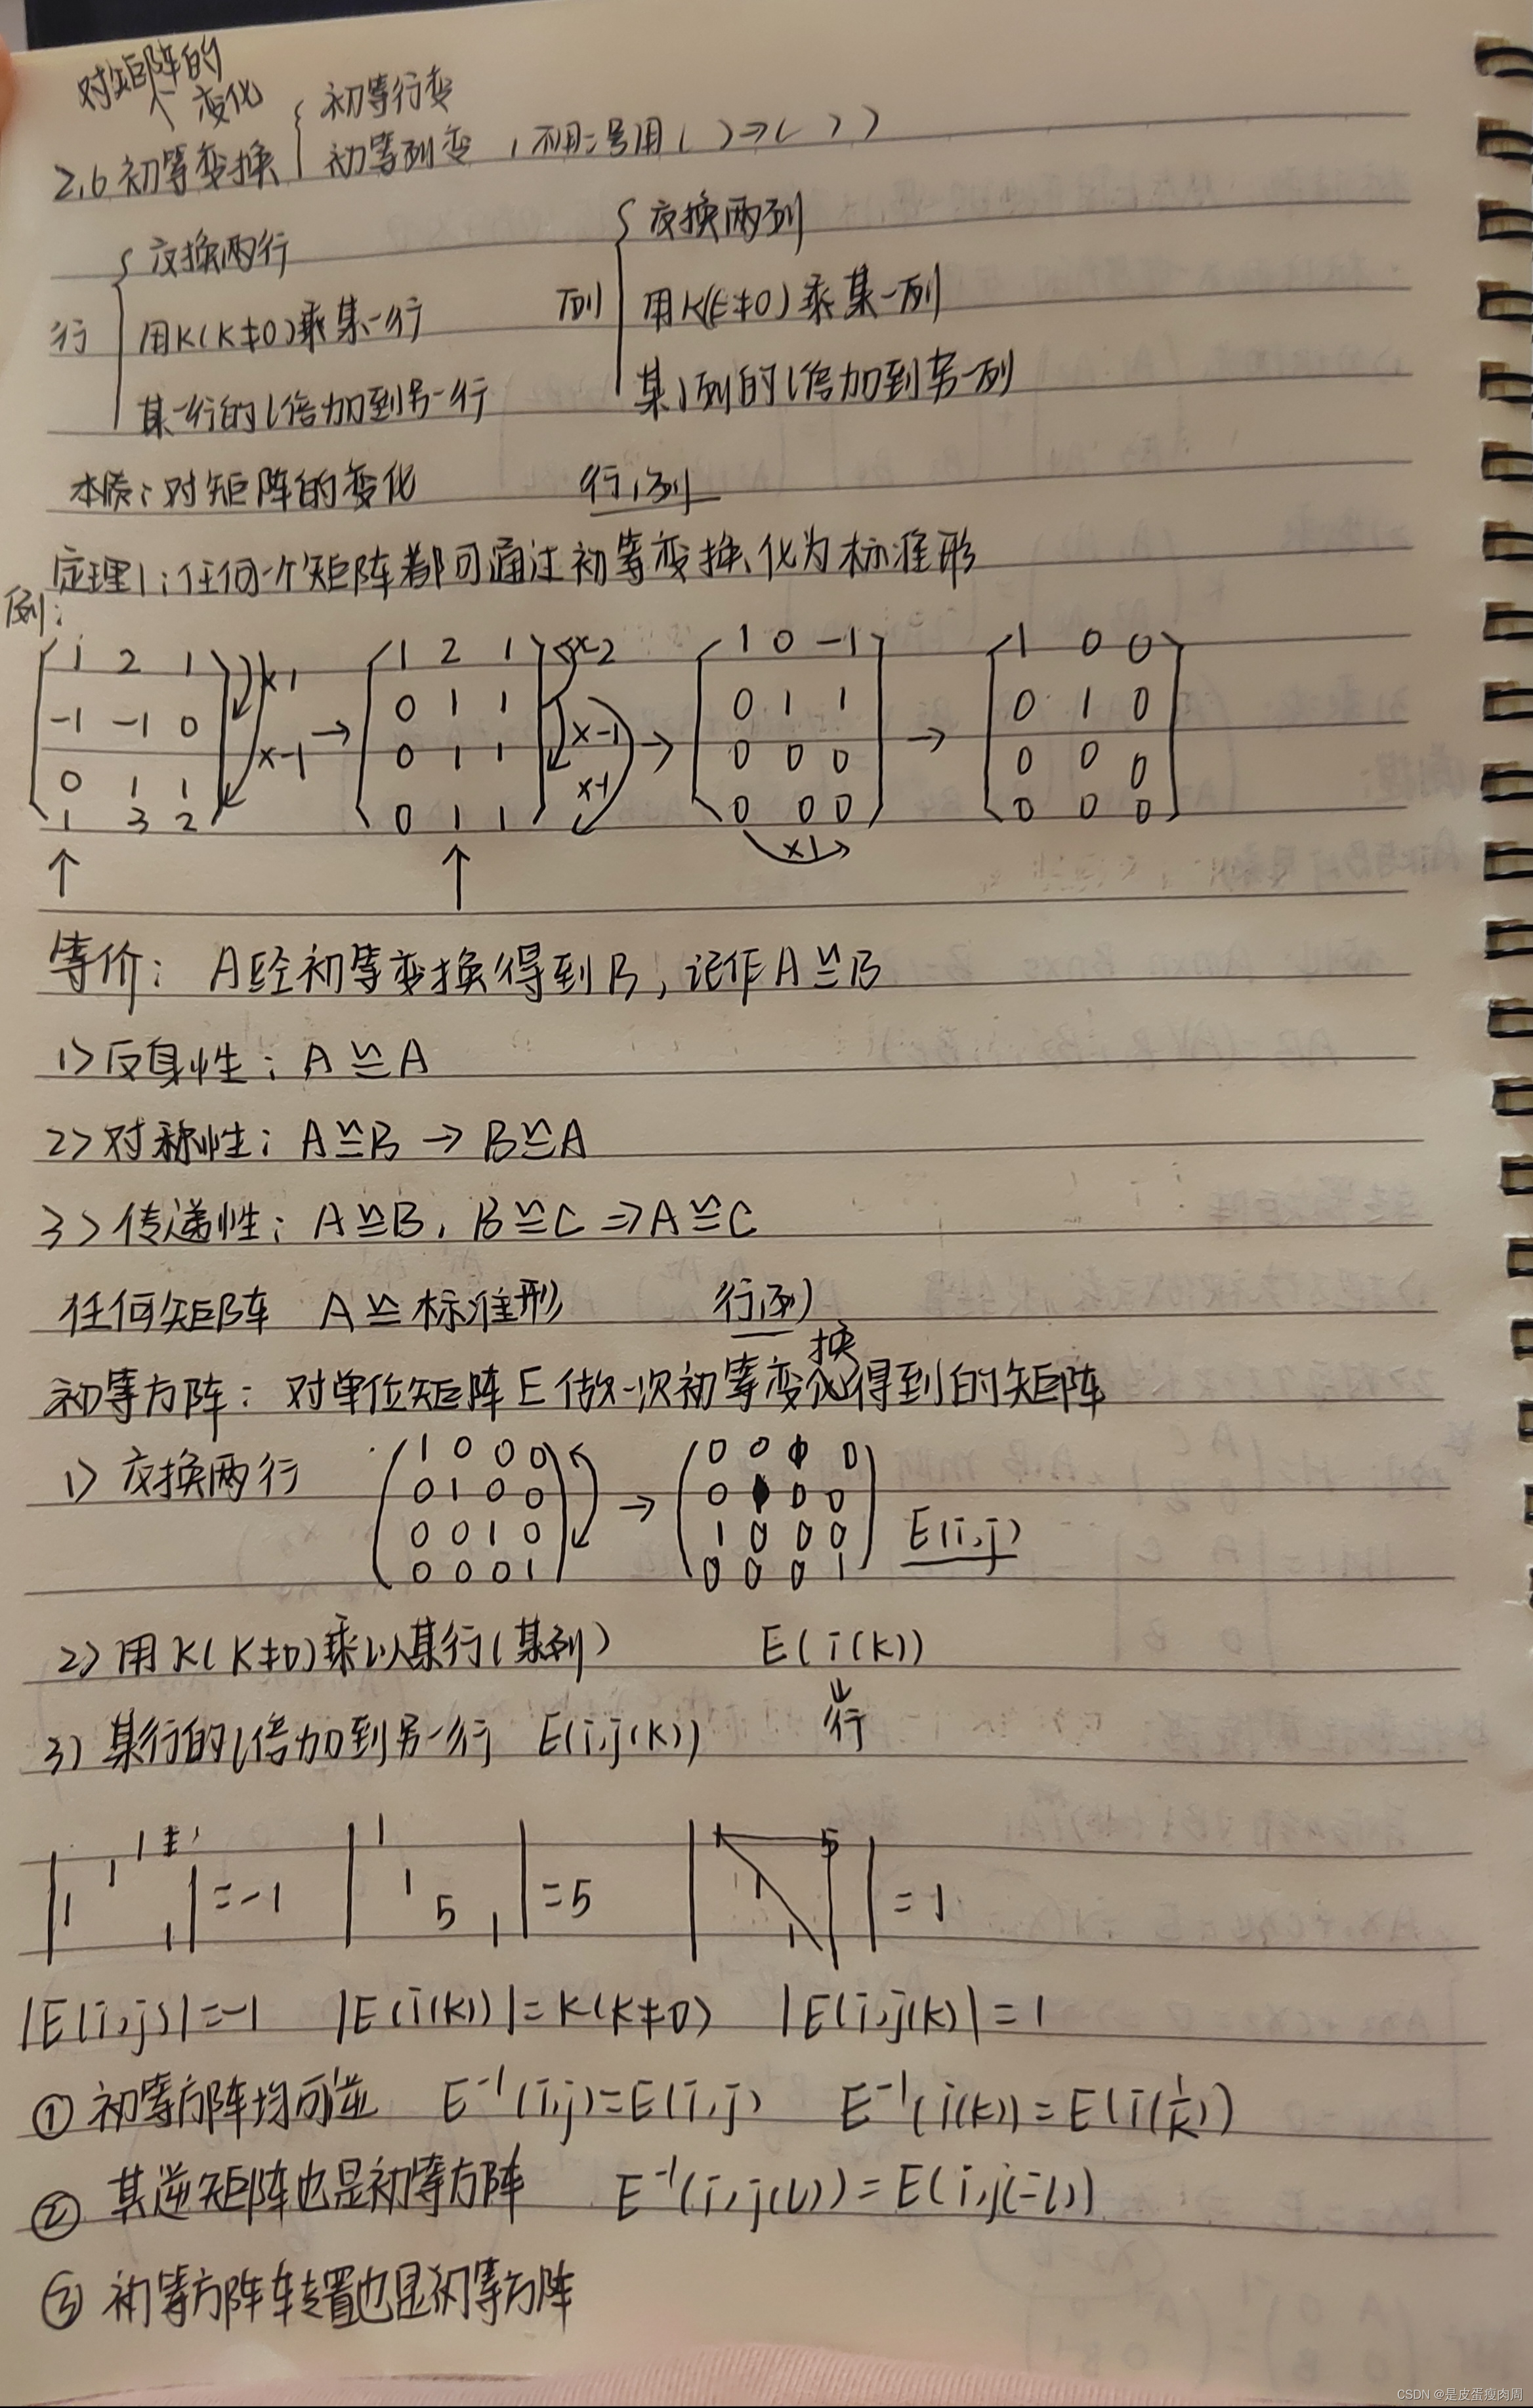 对矩阵的
变化
2.6 初等变换 { 初等行变
初等列变 (不用=号用( )→( ))
行 { 交换两行
用K(K≠0)乘某一行
某一行的l倍加到另一行
列 { 交换两列
用K(K≠0)乘某一列
某1列的l倍加到另一列
本质:对矩阵的变化 行,列
定理1:任何一个矩阵都可通过初等变换化为标准形
例:
( 1 2 1 ) ×1 ( 1 2 1 ) ×-2 ( 1 0 -1 ) ( 1 0 0 )
( -1 -1 0 ) ×-1 → ( 0 1 1 ) ×-1 → ( 0 1 1 ) → ( 0 1 0 )
( 0 1 1 ) ( 0 1 1 ) ×-1 ( 0 0 0 ) ( 0 0 0 )
( 1 3 2 ) ( 0 1 1 ) ( 0 0 0 ) ( 0 0 0 )
↑ ↑ ×1
等价: A经初等变换得到B,记作A≌B
1>反身性: A≌A
2>对称性: A≌B → B≌A
3>传递性: A≌B, B≌C ⇒ A≌C
任何矩阵 A≌标准形 行,列
换
初等方阵: 对单位矩阵E做一次初等变化得到的矩阵
1> 交换两行
( 1 0 0 0 ) ( 0 0 1 0 )
( 0 1 0 0 ) → ( 0 1 0 0 )
( 0 0 1 0 ) ( 1 0 0 0 ) E(i,j)
( 0 0 0 1 ) ( 0 0 0 1 )
2> 用K(K≠0)乘以某行(某列) E(i(k))
↓
行
3) 某行的l倍加到另一行 E(i,j(k))
| 1 1 1 1 | = -1 | 1 1 5 1 | = 5 | 1 5 1 1 | = 1
|E(i,j)|=-1 |E(i(k))|=K(K≠0) |E(i,j(k)|=1
① 初等方阵均可逆 E⁻¹(i,j)=E(i,j) E⁻¹(i(k))=E(i(1/k))
② 其逆矩阵也是初等方阵 E⁻¹(i,j(l))=E(i,j(-l))
③ 初等方阵转置也是初等方阵
CSDN @是皮蛋瘦肉周